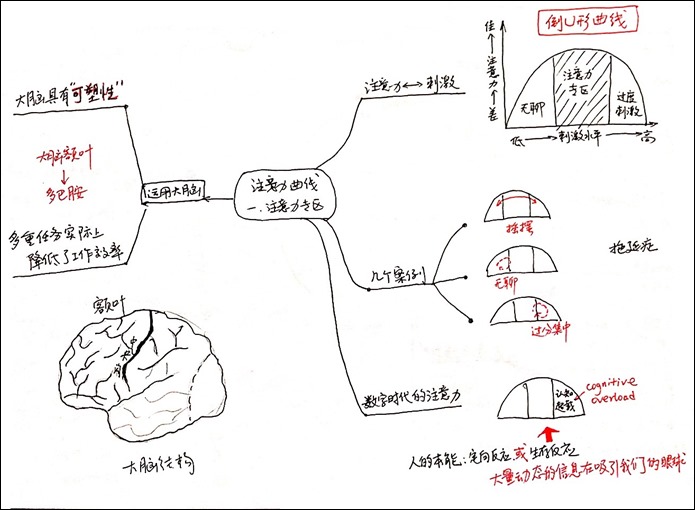 倒U形曲线
佳
注意力
差
无聊
注意力
专区
过度
刺激
低
刺激水平
高
注意力
刺激
大脑具有"可塑性"
大脑额叶
多巴胺
运用大脑
多重任务实际上
降低了工作效率
注意力曲线
一注意力专区
几个案例
摇摆
无聊
过分集中
拖延症
数字时代的注意力
认知
超载
cognitive
overload
人的本能:定向反应或生存反应
大量动态的信息在吸引我们的眼球
额叶
中
央
沟
大脑结构